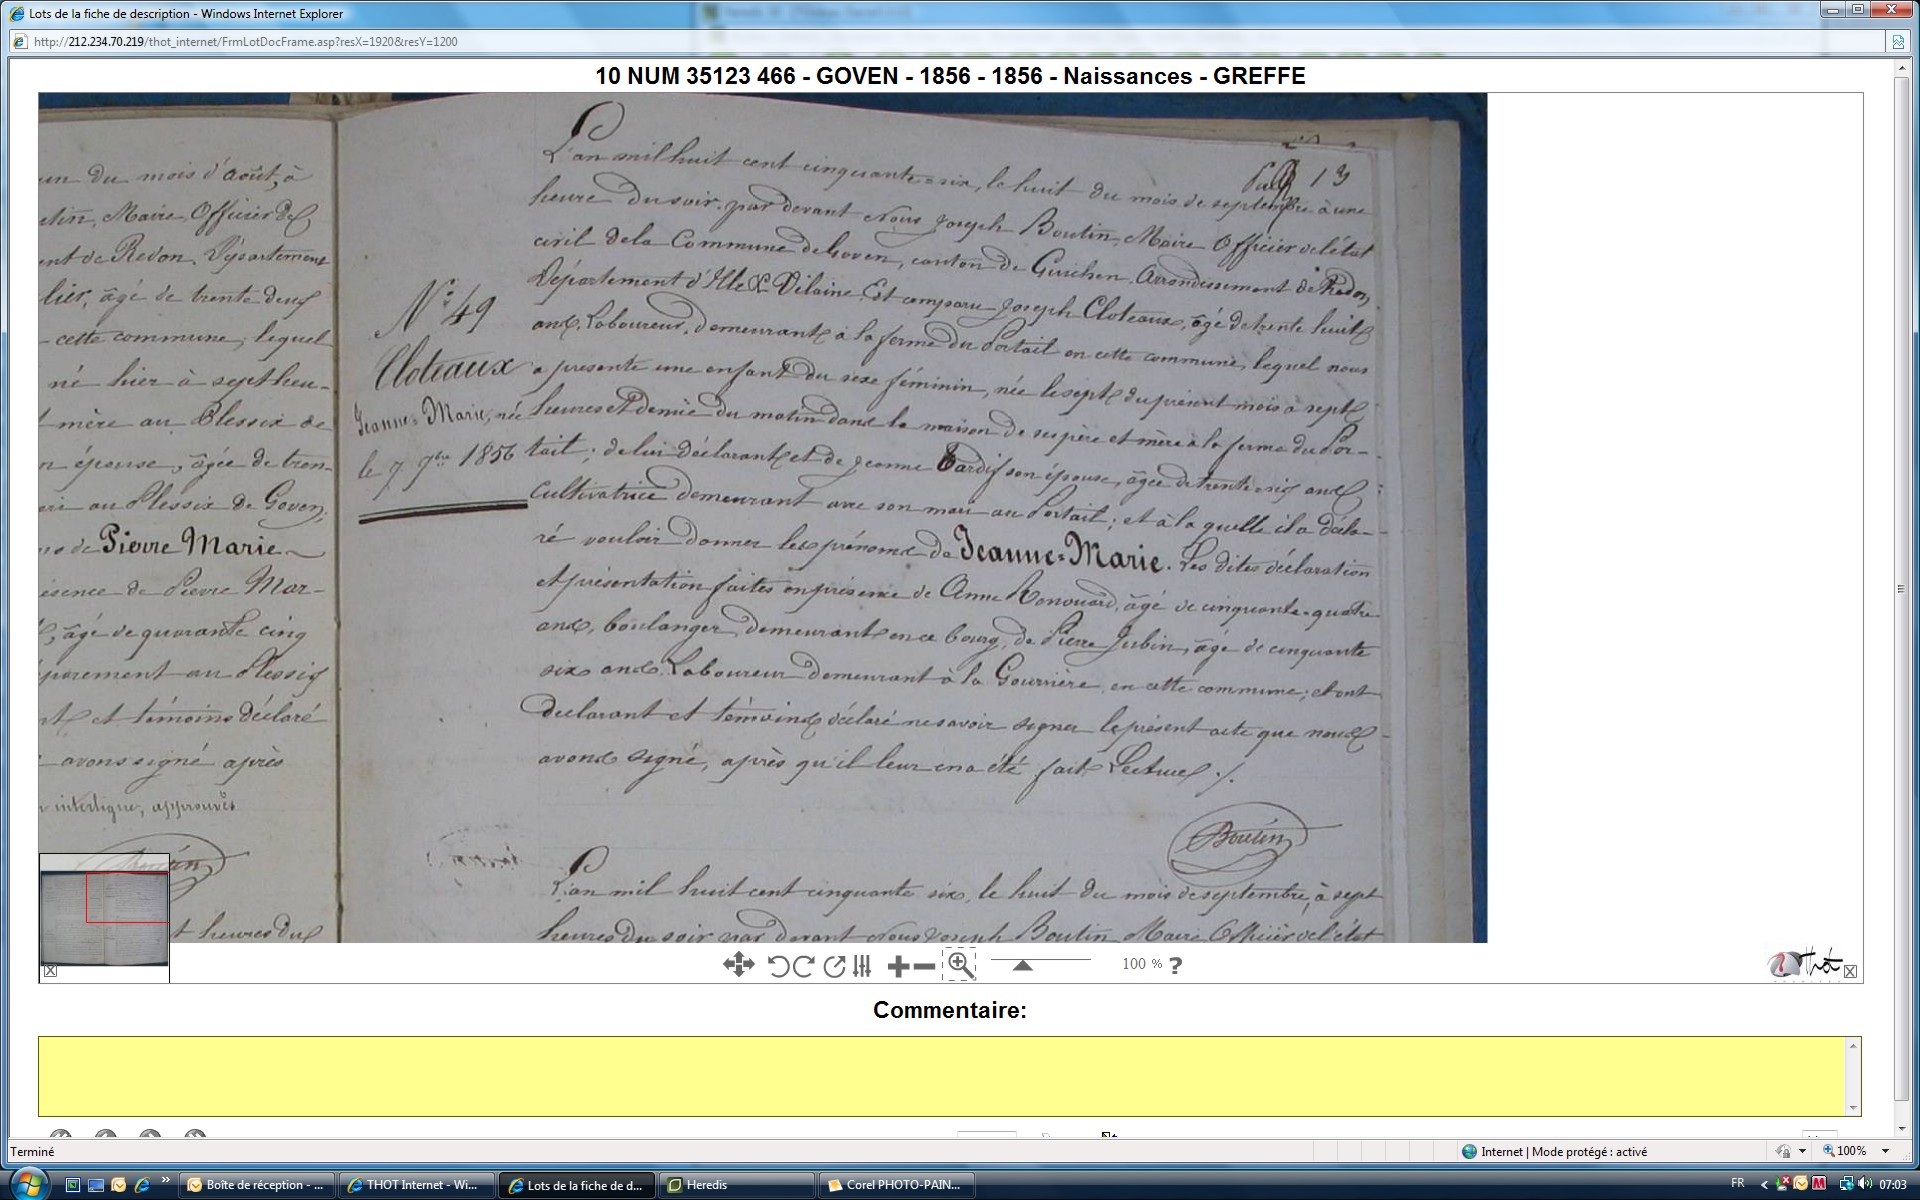 Lots de la fiche de description - Windows Internet Explorer
http://212.234.70.219/thot_internet/FrmLotDocFrame.asp?resX=1920&resY=1200
10 NUM 35123 466 - GOVEN - 1856 - 1856 - Naissances - GREFFE
un du mois d'août, à
Maire, Officier de
ent de Redon, Département
lier, âgé de trente deux
cette commune, lequel
né hier à sept heu-
mère au Plessix de
n épouse, âgée de tren-
au Plessix de Goven,
de Pierre Marie
ésence de Pierre Mar-
âgé de quarante cinq
parement au Plessix
et témoins déclaré
avons signé après
interligne, approuvés
Boutin
t heures du
13
N° 49
Cloteaux
Jeanne-Marie, née
le 7 7bre 1856
L'an mil huit cent cinquante-six, le huit du mois de septembre à une
heure du soir, par devant Nous Joseph Boutin, Maire Officier de l'état
civil de la Commune de Goven, canton de Guichen, Arrondissement de Redon,
Département d'Ille & Vilaine, Est comparu Joseph Cloteaux, âgé de trente huit
ans, Laboureur, demeurant à la ferme du Portail en cette commune, lequel nous
a présenté une enfant du sexe féminin, née le sept du présent mois à sept
heures et demie du matin dans la maison de ses père et mère à la ferme du Por-
tail; de lui déclarant et de Jeanne Tardif son épouse, âgée de trente-six ans,
Cultivatrice demeurant avec son mari au Portail; et à la quelle il a décla-
ré vouloir donner les prénoms de Jeanne-Marie. Les dites déclaration
et présentation faites en présence de Anne Renouard, âgé de cinquante-quatre
ans, boulanger, demeurant en ce bourg, de Pierre Jubin, âgé de cinquante
six ans, Laboureur demeurant à la Gournière en cette commune; et ont
declarant et témoins déclaré ne savoir signer le présent acte que nous
avons signé, après qu'il leur en a été fait Lecture ./.
Boutin
L'an mil huit cent cinquante six, le huit du mois de septembre, à sept
heures du soir par devant Nous Joseph Boutin Maire Officier de l'état
100 % ?
Thot
Commentaire:
Terminé
Internet | Mode protégé : activé
100%
Boîte de réception - ...
THOT Internet - Wi...
Lots de la fiche de d...
Heredis
Corel PHOTO-PAIN...
FR
07:03